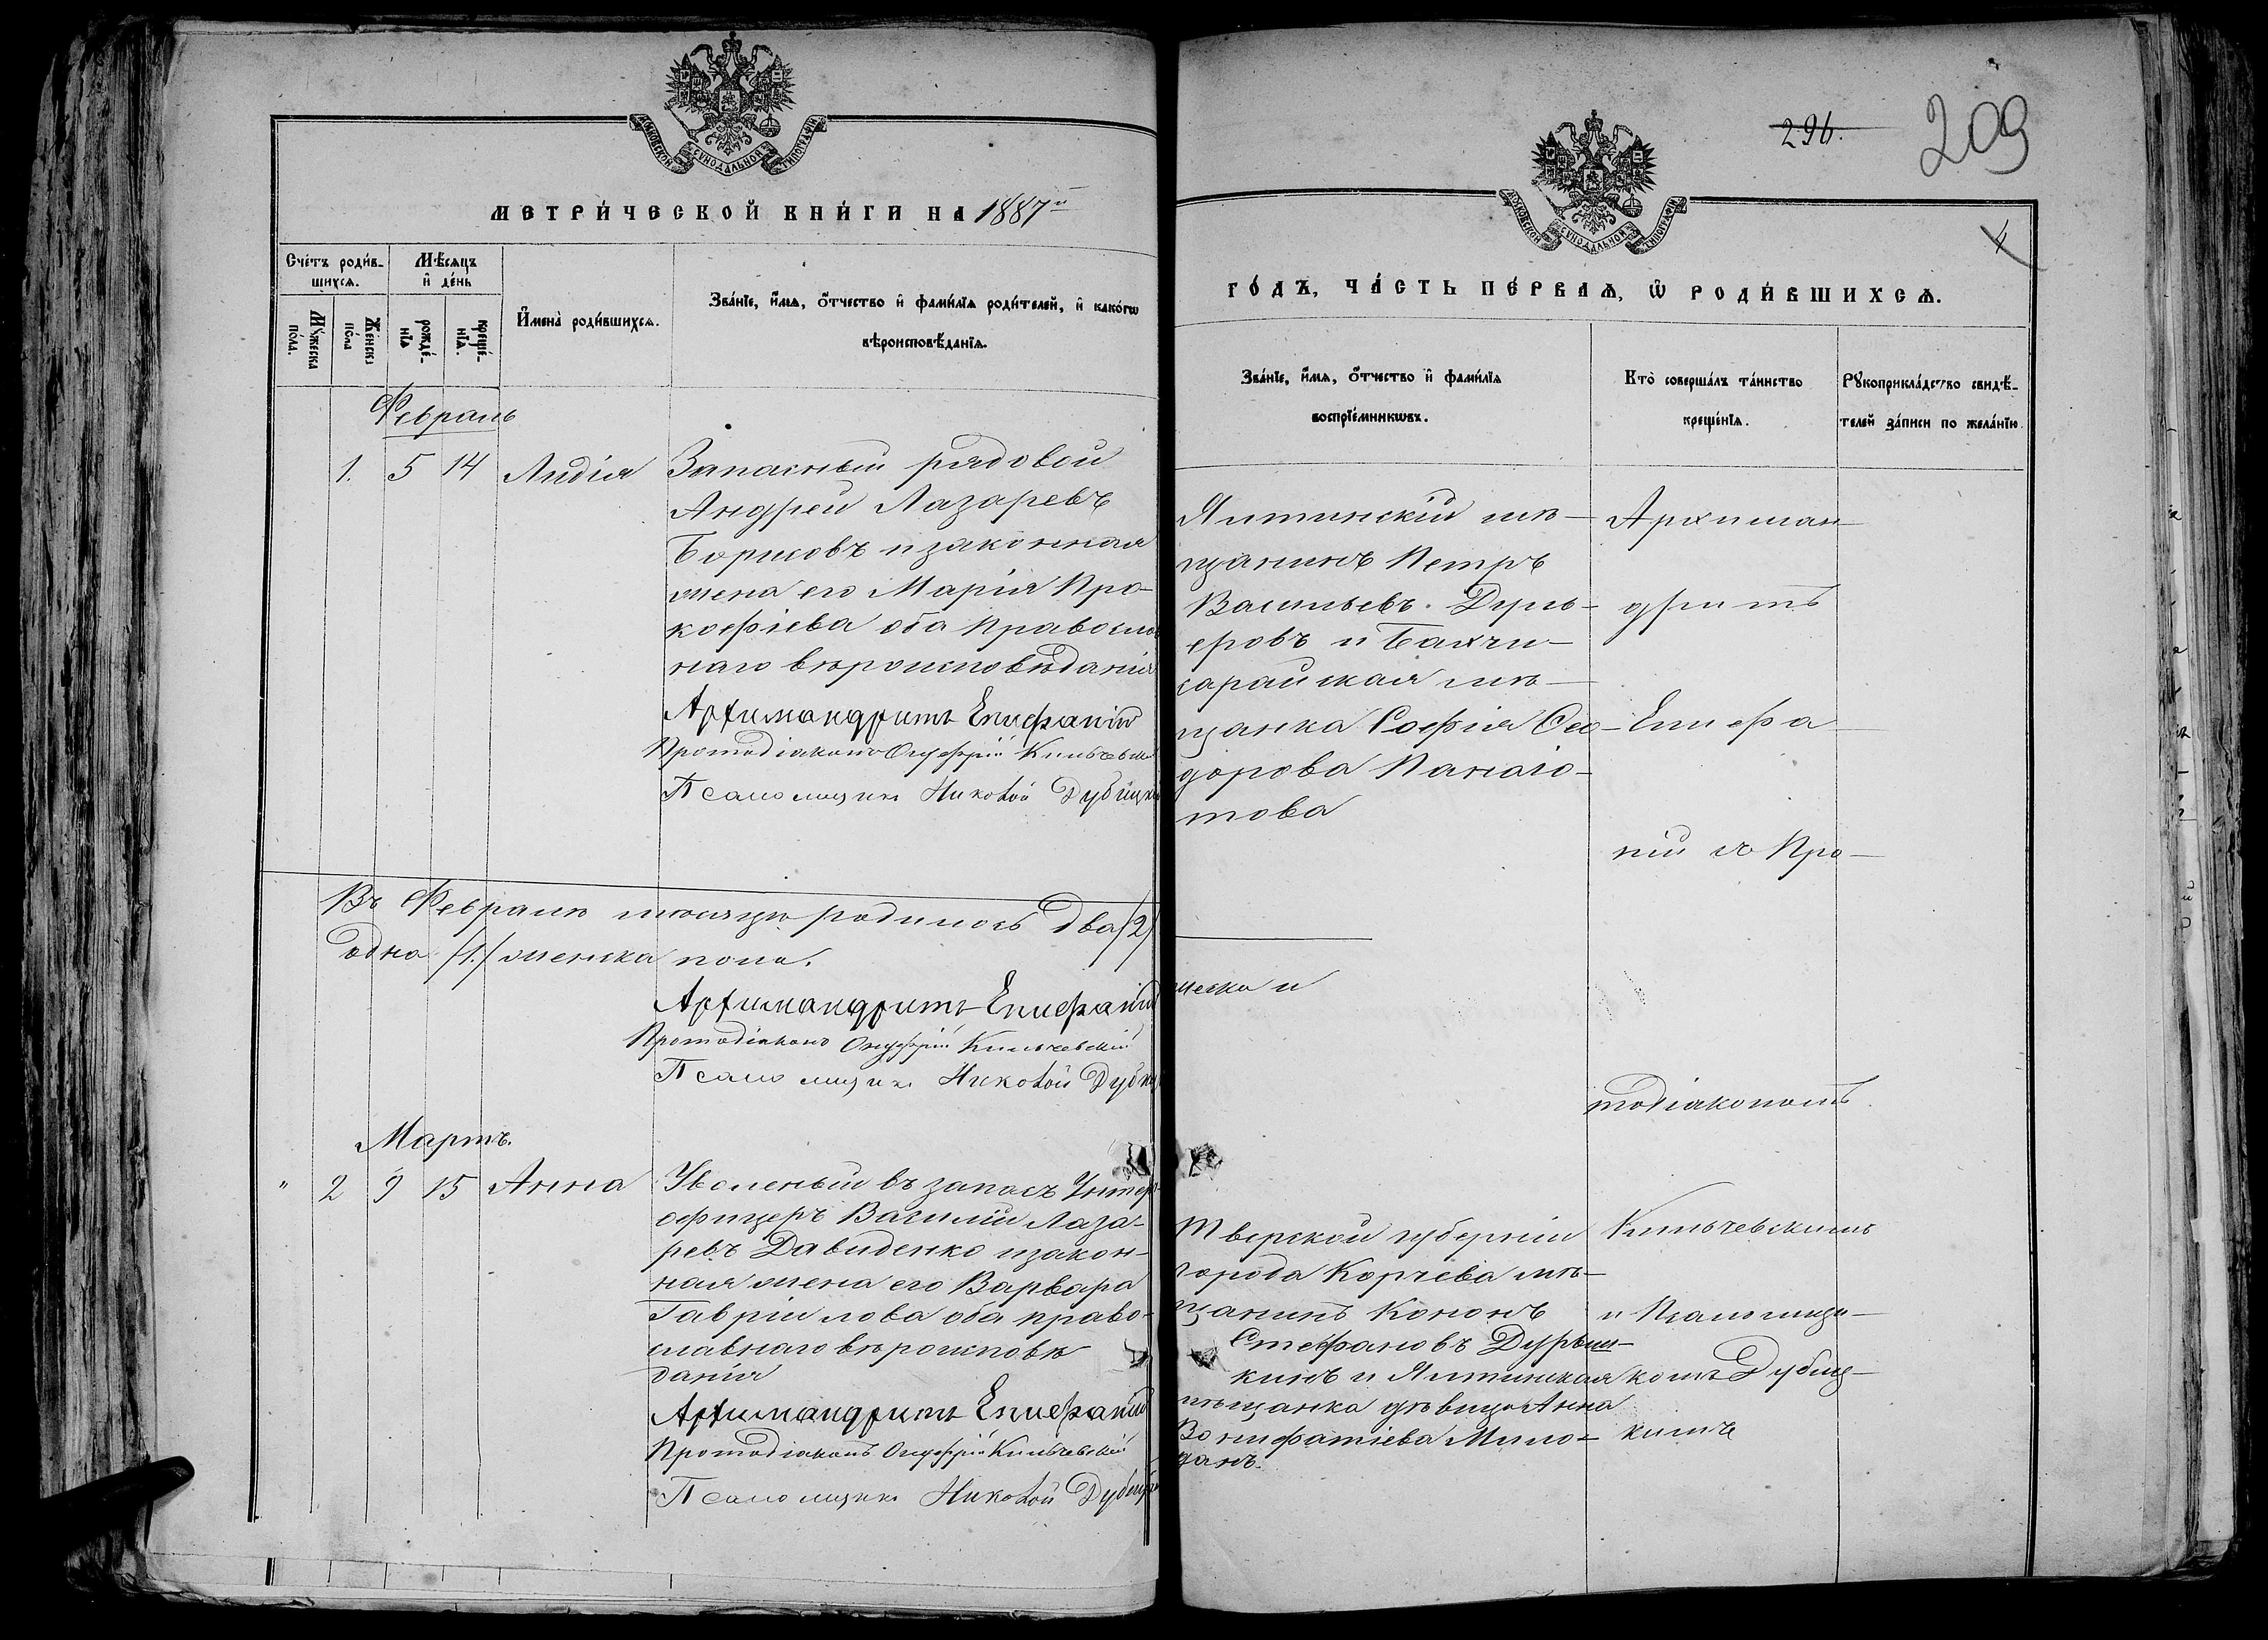 МОСКОВСКОЙ СУНОДАЛЬНОЙ ТИПОГРАФІИ
МЕТРИ́ЧЕСКОЙ КНИ́ГИ НА 1887й
Сче́тъ роди́в-
шихсѧ.
Мѣ́сѧцъ
и҆ де́нь
Мꙋ́жеска
по́ла.
Же́нска
по́ла
рожде́-
нїѧ
креще́-
нїѧ.
И҆мена̀ роди́вшихсѧ.
Зва́нїе, и҆́мѧ, ѻ҆́тчество и҆ фами́лїѧ роди́телей, и҆ како́гѡ
вѣроисповѣ́данїѧ.
Февраль
1. 5 14 Лидія
Запасный рядовой
Андрей Лазаревъ
Борисовъ и законная
жена его Марія Про-
кофіева оба Правосла
наго вѣроисповѣданія
Архимандритъ Епифаній
Протодіаконъ Онуфрій Кильчевскій
Псаломщикъ Николай Дубицкі
Въ Февралѣ мѣсяцѣ родилось два (2)
одна (1.) женска пола.
Архимандритъ Епифаній
Протодіаконъ Онуфрій Кильчевскій
Псаломщикъ Николай Дубиц
Мартъ.
" 2 9 15 Анна
Уволеный въ запасъ Унтеръ
офицеръ Василій Лаза-
ревъ Давиденко и закон-
ная жена его Варвара
Гавріилова оба право-
славнаго вѣроисповѣ
данія
Архимандритъ Епифаній
Протодіаконъ Онуфрій Кильчевскій
Псаломщикъ Николай Дубицкі
296.
209
МОСКОВСКОЙ СУНОДАЛЬНОЙ ТИПОГРАФІИ
ГО́ДЪ, ЧА́СТЬ ПЕ́РВАѦ, Ѡ҆ РОДИ́ВШИХСѦ.
Зва́нїе, и҆́мѧ, ѻ҆́тчество и҆ фами́лїѧ
воспрїе́мникѡвъ.
Кто̀ соверша́лъ та́инство
креще́нїѧ.
Рꙋкоприкла́дство свидѣ́-
телей за́писи по жела́нїю.
Ялтинскій мѣ-
щанинъ Петръ
Васильевъ Дуль-
еровъ и Бахчи-
сарайская мѣ-
щанка Софія Ѳео-
дорова Панаіо-
това
Архиман-
дритъ
Епифа-
ній съ Про-
тодіакономъ
Кильчевскимъ
и Псаломщи-
комъ Дубиц-
кимъ
ческа и
Тверской губерніи
города Корчева мѣ-
щанинъ Кононъ
Стефановъ Дурыш-
кинъ и Ялтинская
мѣщанка дѣвица Анна
Вонифатіева Мило-
данъ.